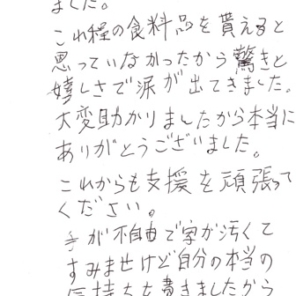 ました。
これ程の食料品を貰えると
思っていなかったから驚きと
嬉しさで涙が出てきました。
大変助かりましたから本当に
ありがとうございました。
これからも支援を頑張って
ください。
手が不自由で字が汚くて
すみませけど自分の本当の
気持ちを書きましたから